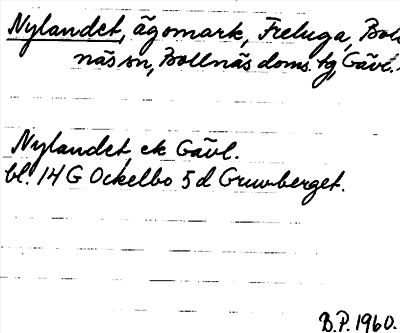 Nylandet, ägomark, Freluga, Bol
näs sn, Bollnäs doms. tg, Gävl.
Nylandet, ek Gävl.
bl. 14 G Ockelbo 5 d Gruvberget.
B.P. 1960.